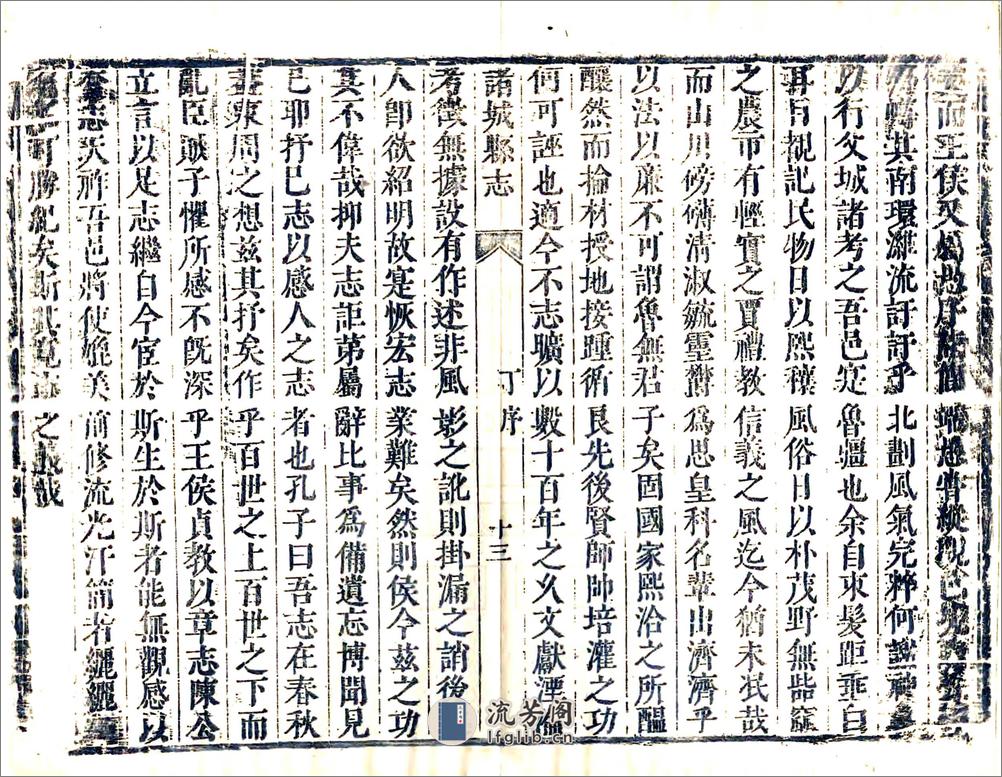 而王侯又屬
其南環濰流訏訏乎北劃風氣完粹何
以行父城諸考之吾邑寔魯疆也余自束髮距乖白
耳目覩記民物日以熙穰風俗日以朴茂野無呰窳
之農市有輕賫之賈禮教信義之風迄今猶未泯哉
而山川磅礴清淑毓靈鬱爲思皇科名輩出濟濟乎
以法以廉不可謂魯無君子矣固國家熙洽之所醞
釀然而掄材授地接踵術良先後賢師帥培灌之功
何可誣也適今不志曠以數十百年之久文獻湮
諸城縣志
丁序
十三
考徵無據設有作述非風影之訛則掛漏之誚後
人卽欲紹明故寔恢宏志業難矣然則侯今兹之功
其不偉哉抑夫志詎第屬辭比事爲備遺忘博聞見
已耶抒已志以感人之志者也孔子曰吾志在春秋
蓋東周之想兹其抒矣作乎百世之上百世之下而
亂臣賊子懼所感不旣深乎王侯貞教以章志陳公
立言以足志繼自今宦於斯生於斯者能無觀感以
奮志天祚吾邑將使媲美前修流光汗簡者纚纚
可勝紀矣斯其之哉
流芳阁
lfglib.cn